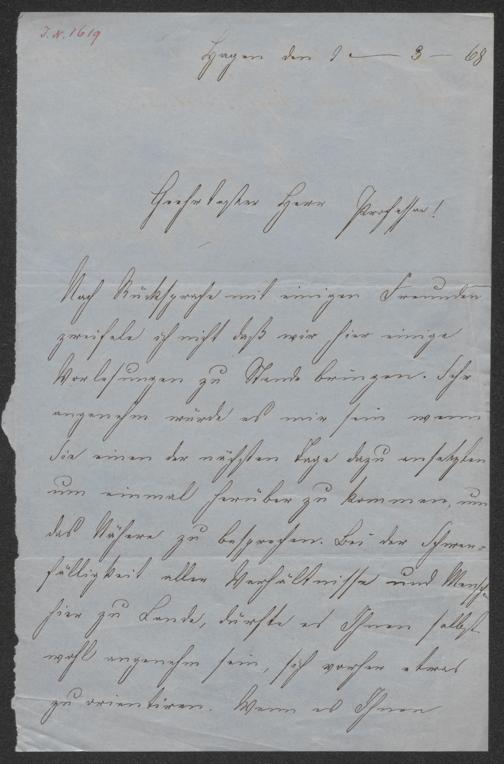 J. N. 1619
Hagen den 9 – 3 – 68
Geehrtester Herr Professor!
Nach Rücksprache mit einigen Freunden
zweifele ich nicht daß wir hier einige
Vorlesungen zu Stande bringen. Sehr
angenehm würde es mir sein wenn
Sie einen der nächsten Tage dazu ansetzten
um einmal herüber zu kommen, um
das Nähere zu besprechen. Bei der Schwer-
fälligkeit aller Verhältnisse und Menschen
hier zu Lande, dürfte es Ihnen selbst
wohl angenehm sein, sich vorher etwas
zu orientiren. Wenn es Ihnen